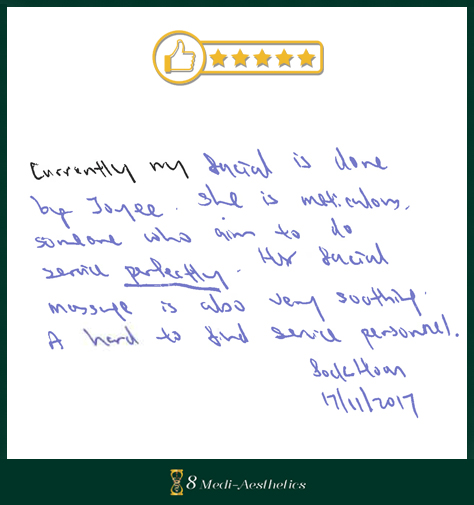 Currently my facial is done
by Joyee. She is meticulous,
someone who aim to do
service perfectly. Her facial
massage is also very soothing.
A hard to find service personnel.
17/11/2017
8 Medi-Aesthetics